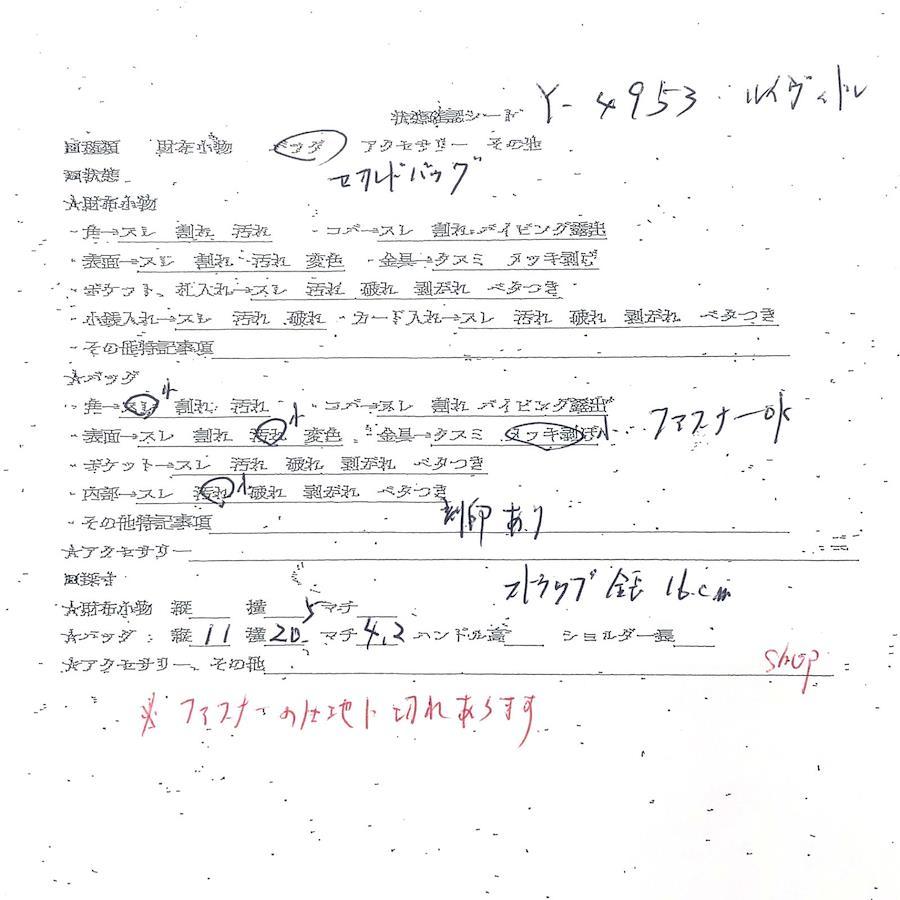 Y-4953 ルイヴィトン
状態確認シート
回種類 財布小物 バッグ アクセサリー その他
回状態 セカンドバッグ
★財布小物
・角→スレ 割れ 汚れ ・コバ→スレ 割れ パイピング露出
・表面→スレ 割れ 汚れ 変色 ・金具→クスミ メッキ剥げ
・ポケット、札入れ→スレ 汚れ 破れ 剥がれ ベタつき
・小銭入れ→スレ 汚れ 破れ ・カード入れ→スレ 汚れ 破れ 剥がれ ベタつき
・その他特記事項
★バッグ
・角→スレ 小 割れ 汚れ ・コバ→スレ 割れ パイピング露出
・表面→スレ 割れ 汚れ 小 変色 ・金具→クスミ メッキ剥げ 小 ファスナーok
・ポケット→スレ 汚れ 破れ 剥がれ ベタつき
・内部→スレ 汚れ 小 破れ 剥がれ ベタつき
・その他特記事項 刻印あり
★アクセサリー
回採寸 ストラップ 全長 16cm
★財布小物 縦 横 マチ
★バッグ:縦 11 横 20.5 マチ 4.2 ハンドル高 ショルダー長
★アクセサリー、その他 shop
※ファスナーの生地に切れあります